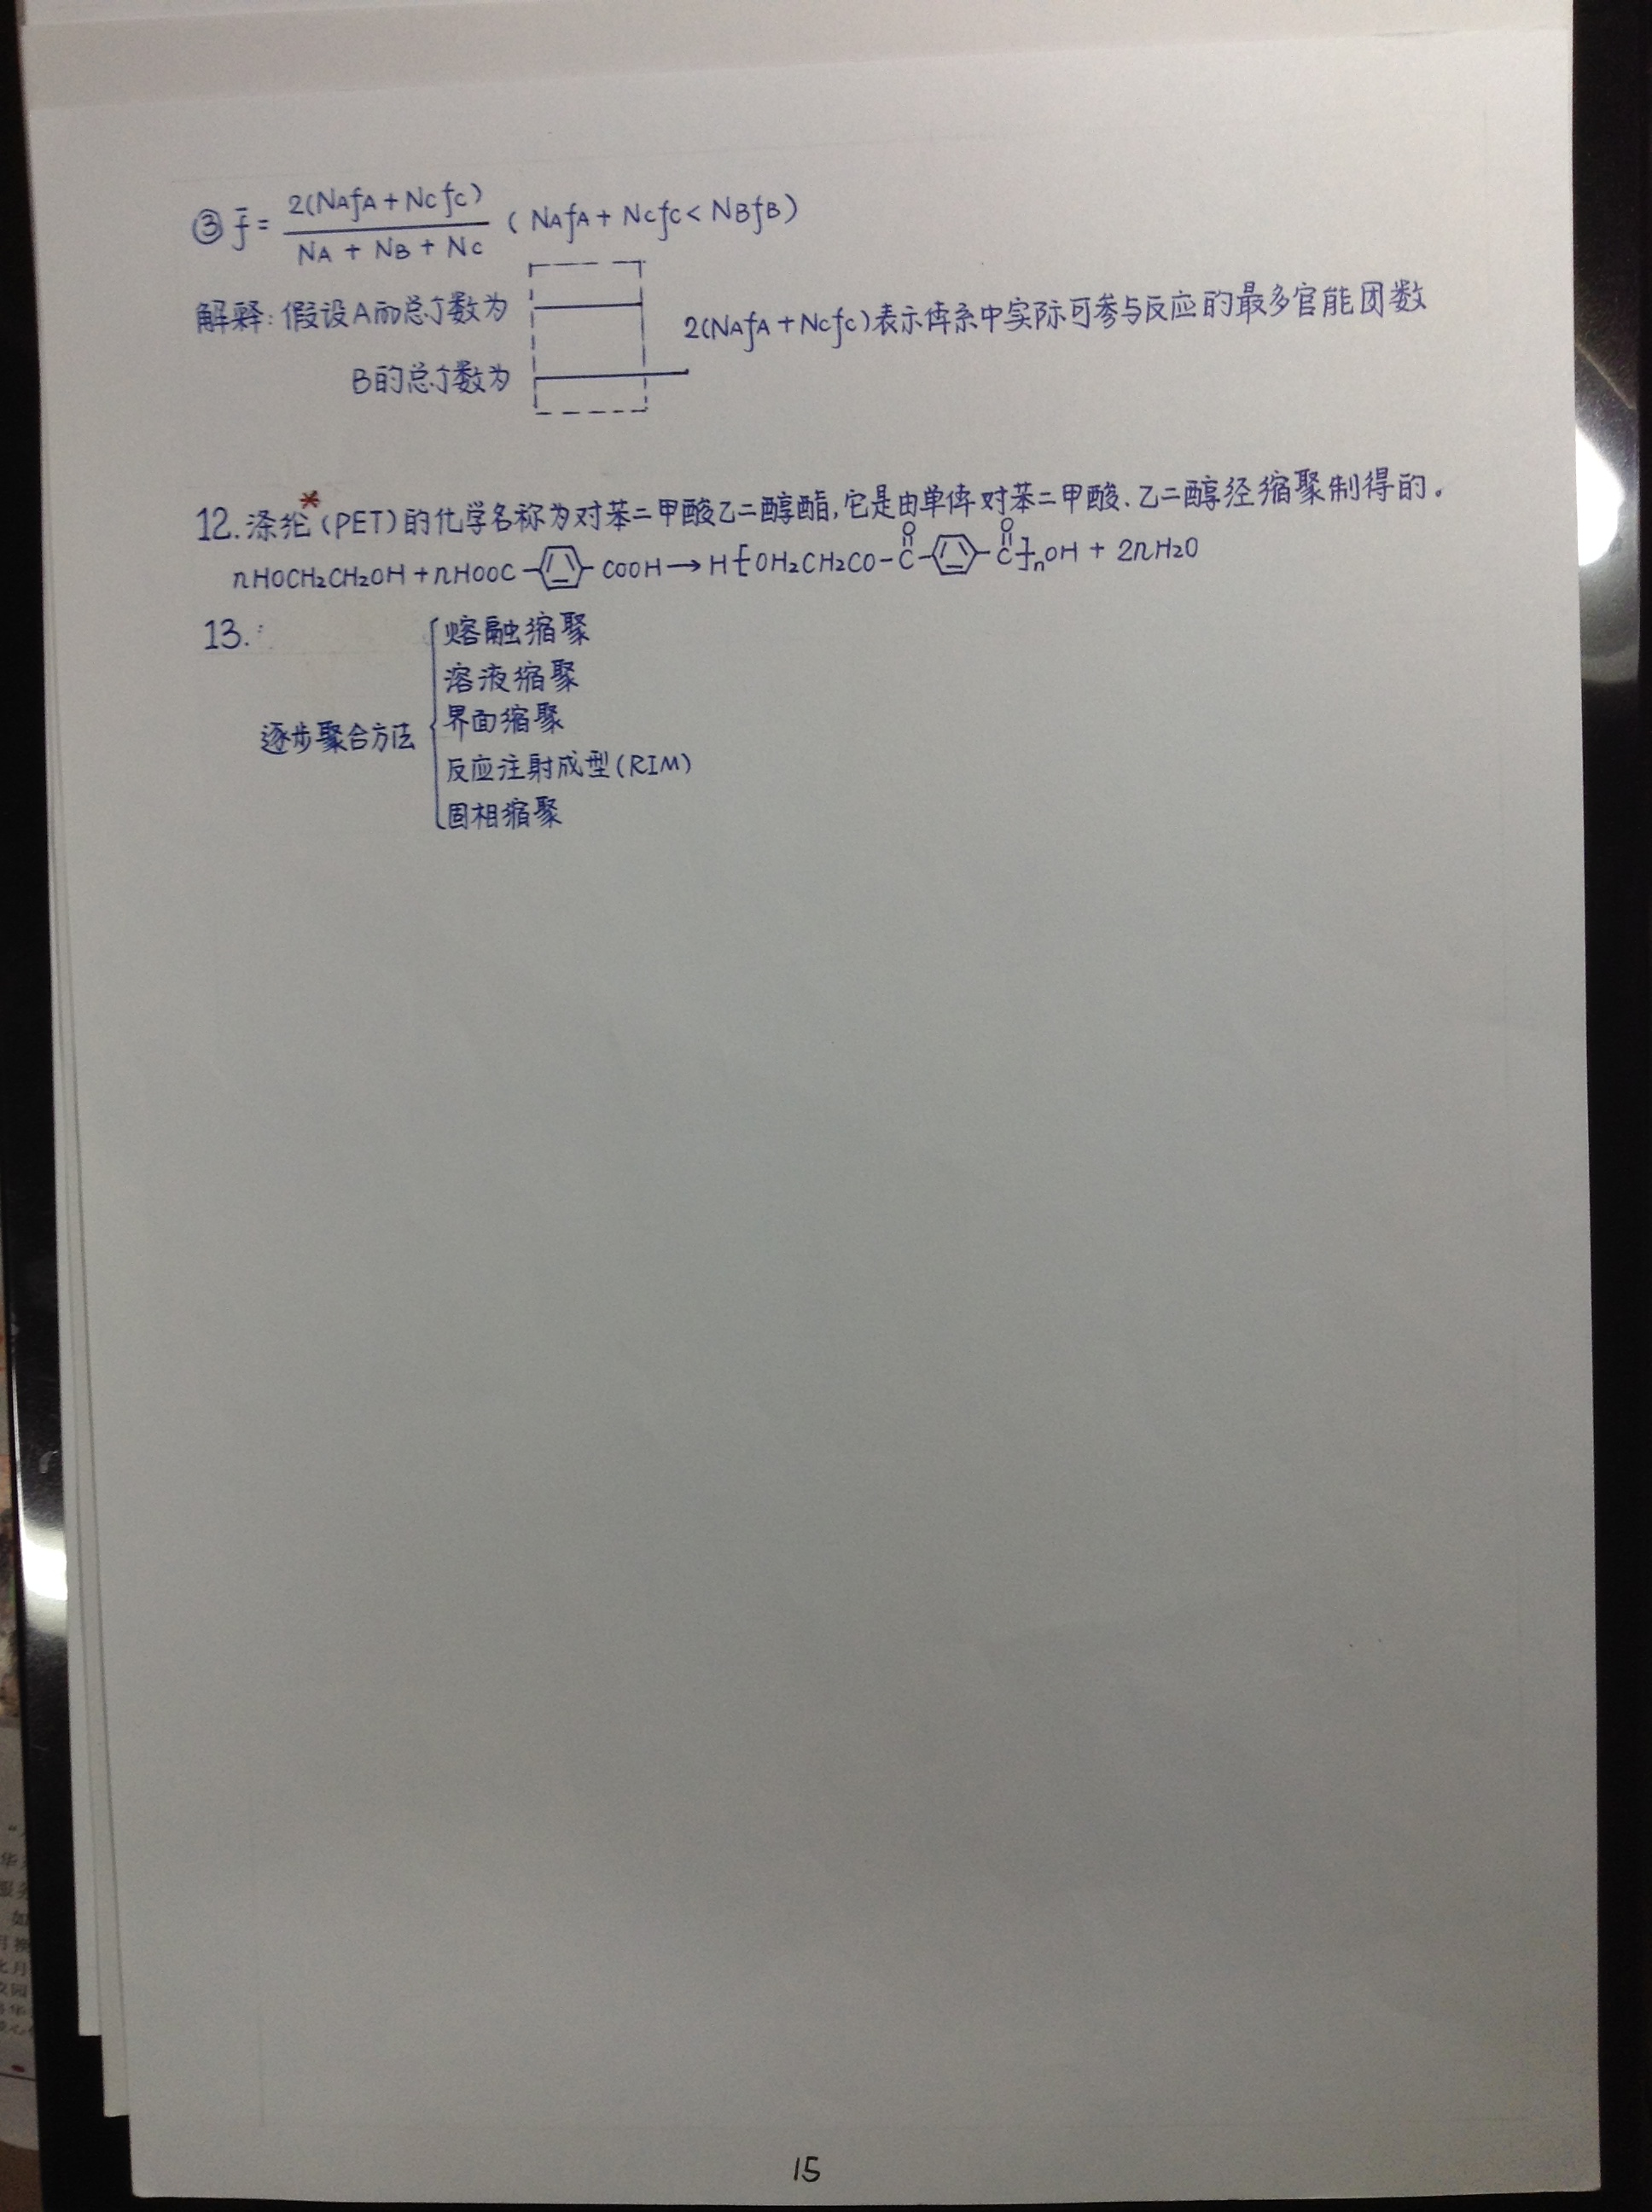 ③ f̄ = 2(NAfA + NCfC) / (NA + NB + NC) ( NAfA + NCfC < NBfB )
解释: 假设A的总个数为
2(NAfA + NCfC)表示体系中实际可参与反应的最多官能团数
B的总个数为
12. 涤纶*(PET)的化学名称为对苯二甲酸乙二醇酯, 它是由单体对苯二甲酸、乙二醇经缩聚制得的。
nHOCH2CH2OH + nHOOC-⌬-COOH → H-[OH2CH2CO-C(=O)-⌬-C(=O)]-nOH + 2nH2O
13.
熔融缩聚
溶液缩聚
界面缩聚
逐步聚合方法
反应注射成型(RIM)
固相缩聚
15